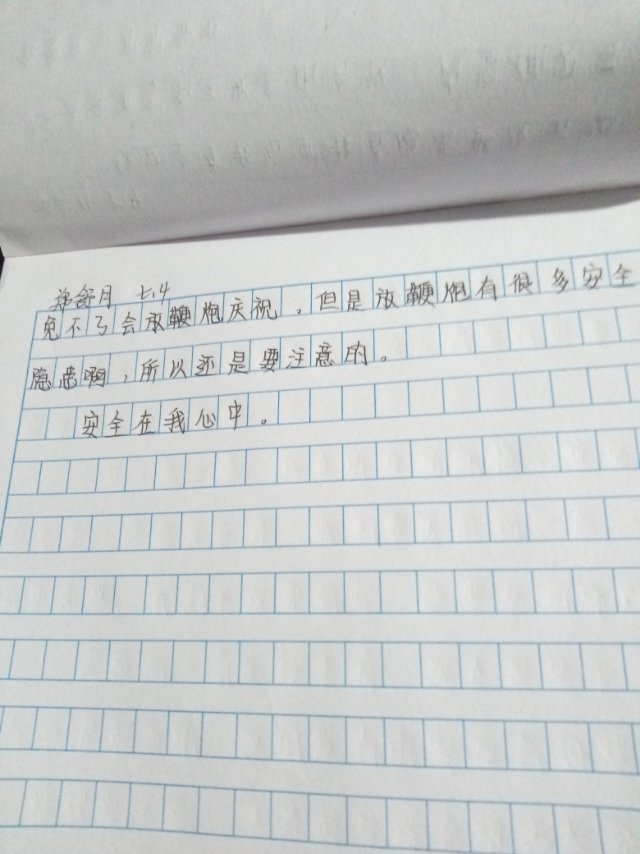 郑舒月 七.4
免不了会放鞭炮庆祝。但是放鞭炮有很多安全
隐患啊，所以还是要注意的。
安全在我心中。